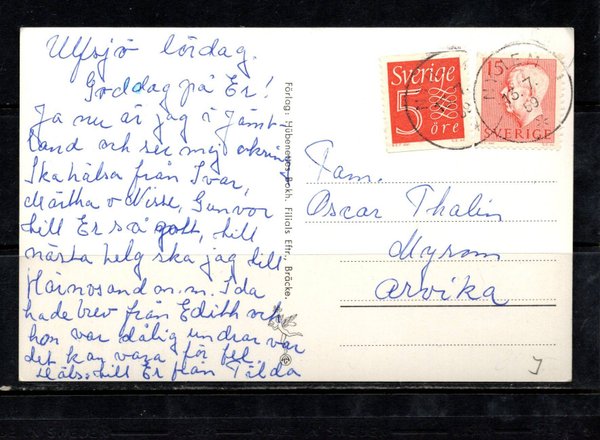 Ulfsjö lördag.
Goddag på Er!
Ja nu är jag i Jämt-
land och ser mej omkring
Ska hälsa från Ivar,
Märtha o Nisse, Gunvor
till Er så gott, till
nästa helg ska jag till
Härnosand o.m. Ida
hade brev från Edith och
hon var dålig undrar var
det kan vara för fel.
Häls: till Er från Tilda
Förlag: Hübenettes Bokh. Filials Eftr., Bräcke.
Sverige
5
öre
15
SVERIGE
Fam.
Oscar Thalin
Myrom
Arvika